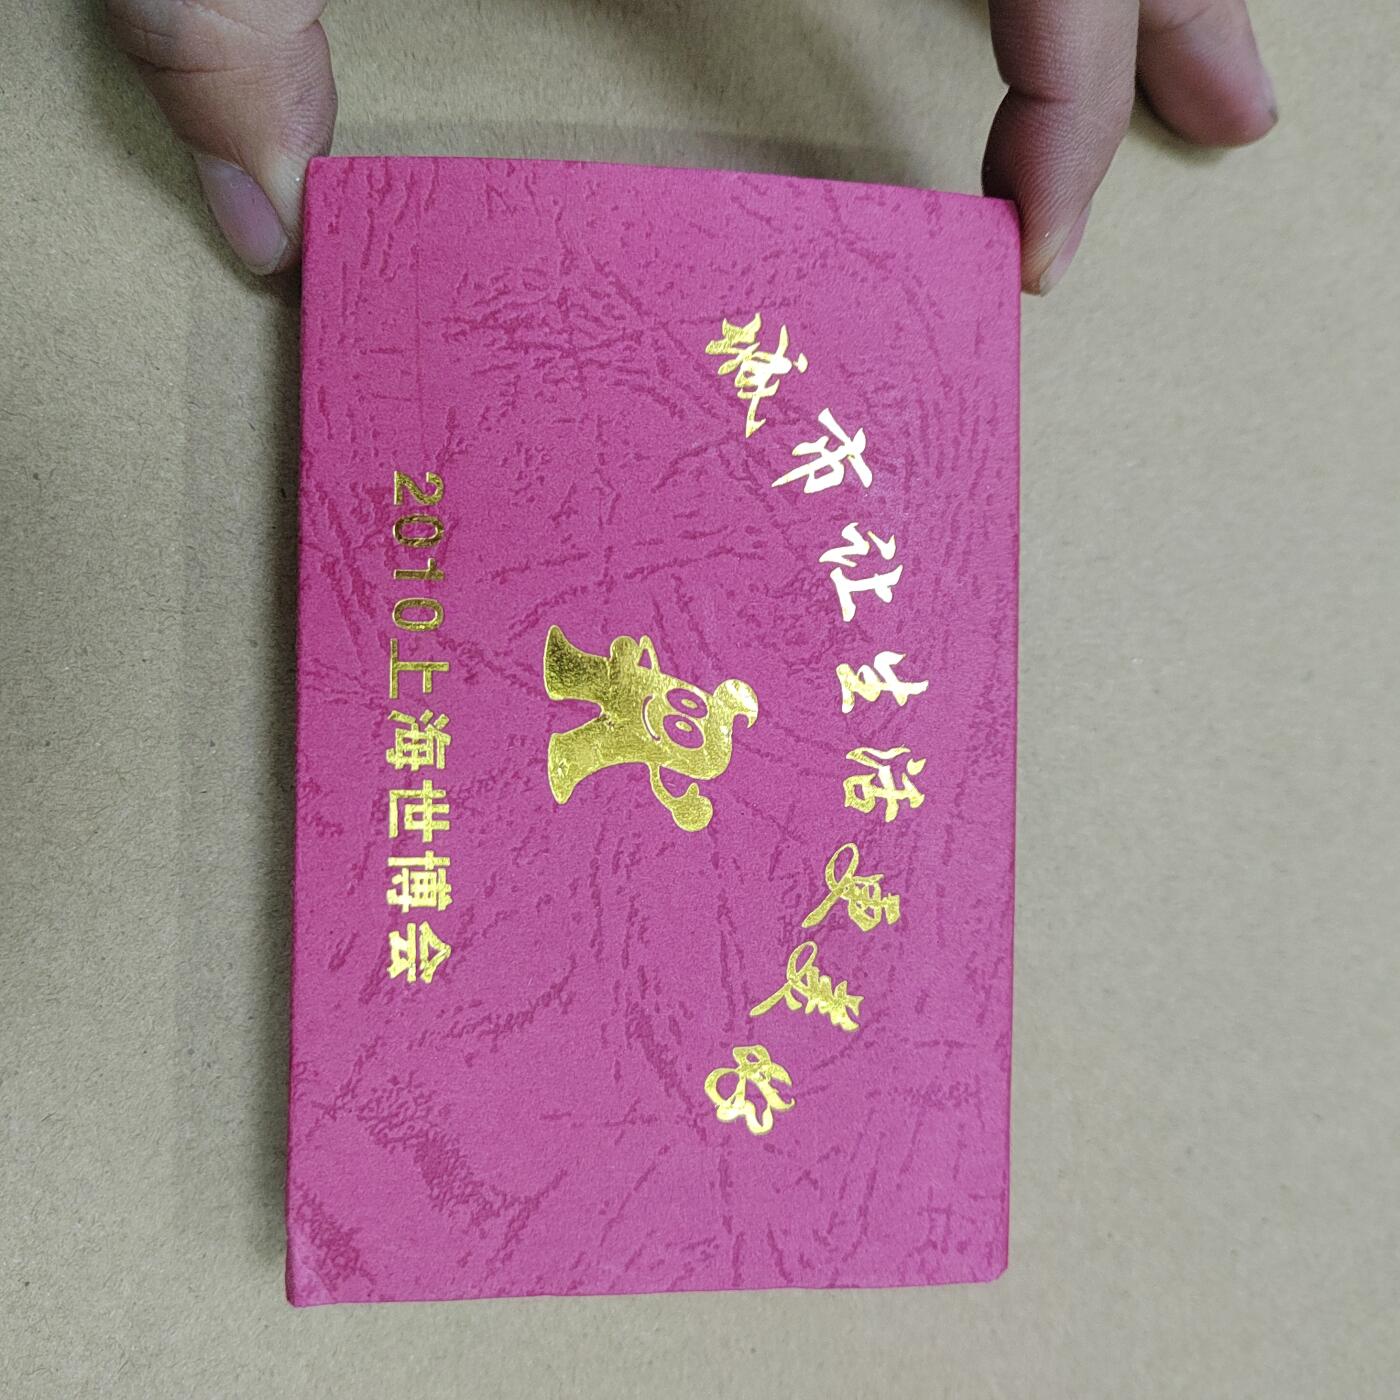 城市让生活更美好
2010上海世博会